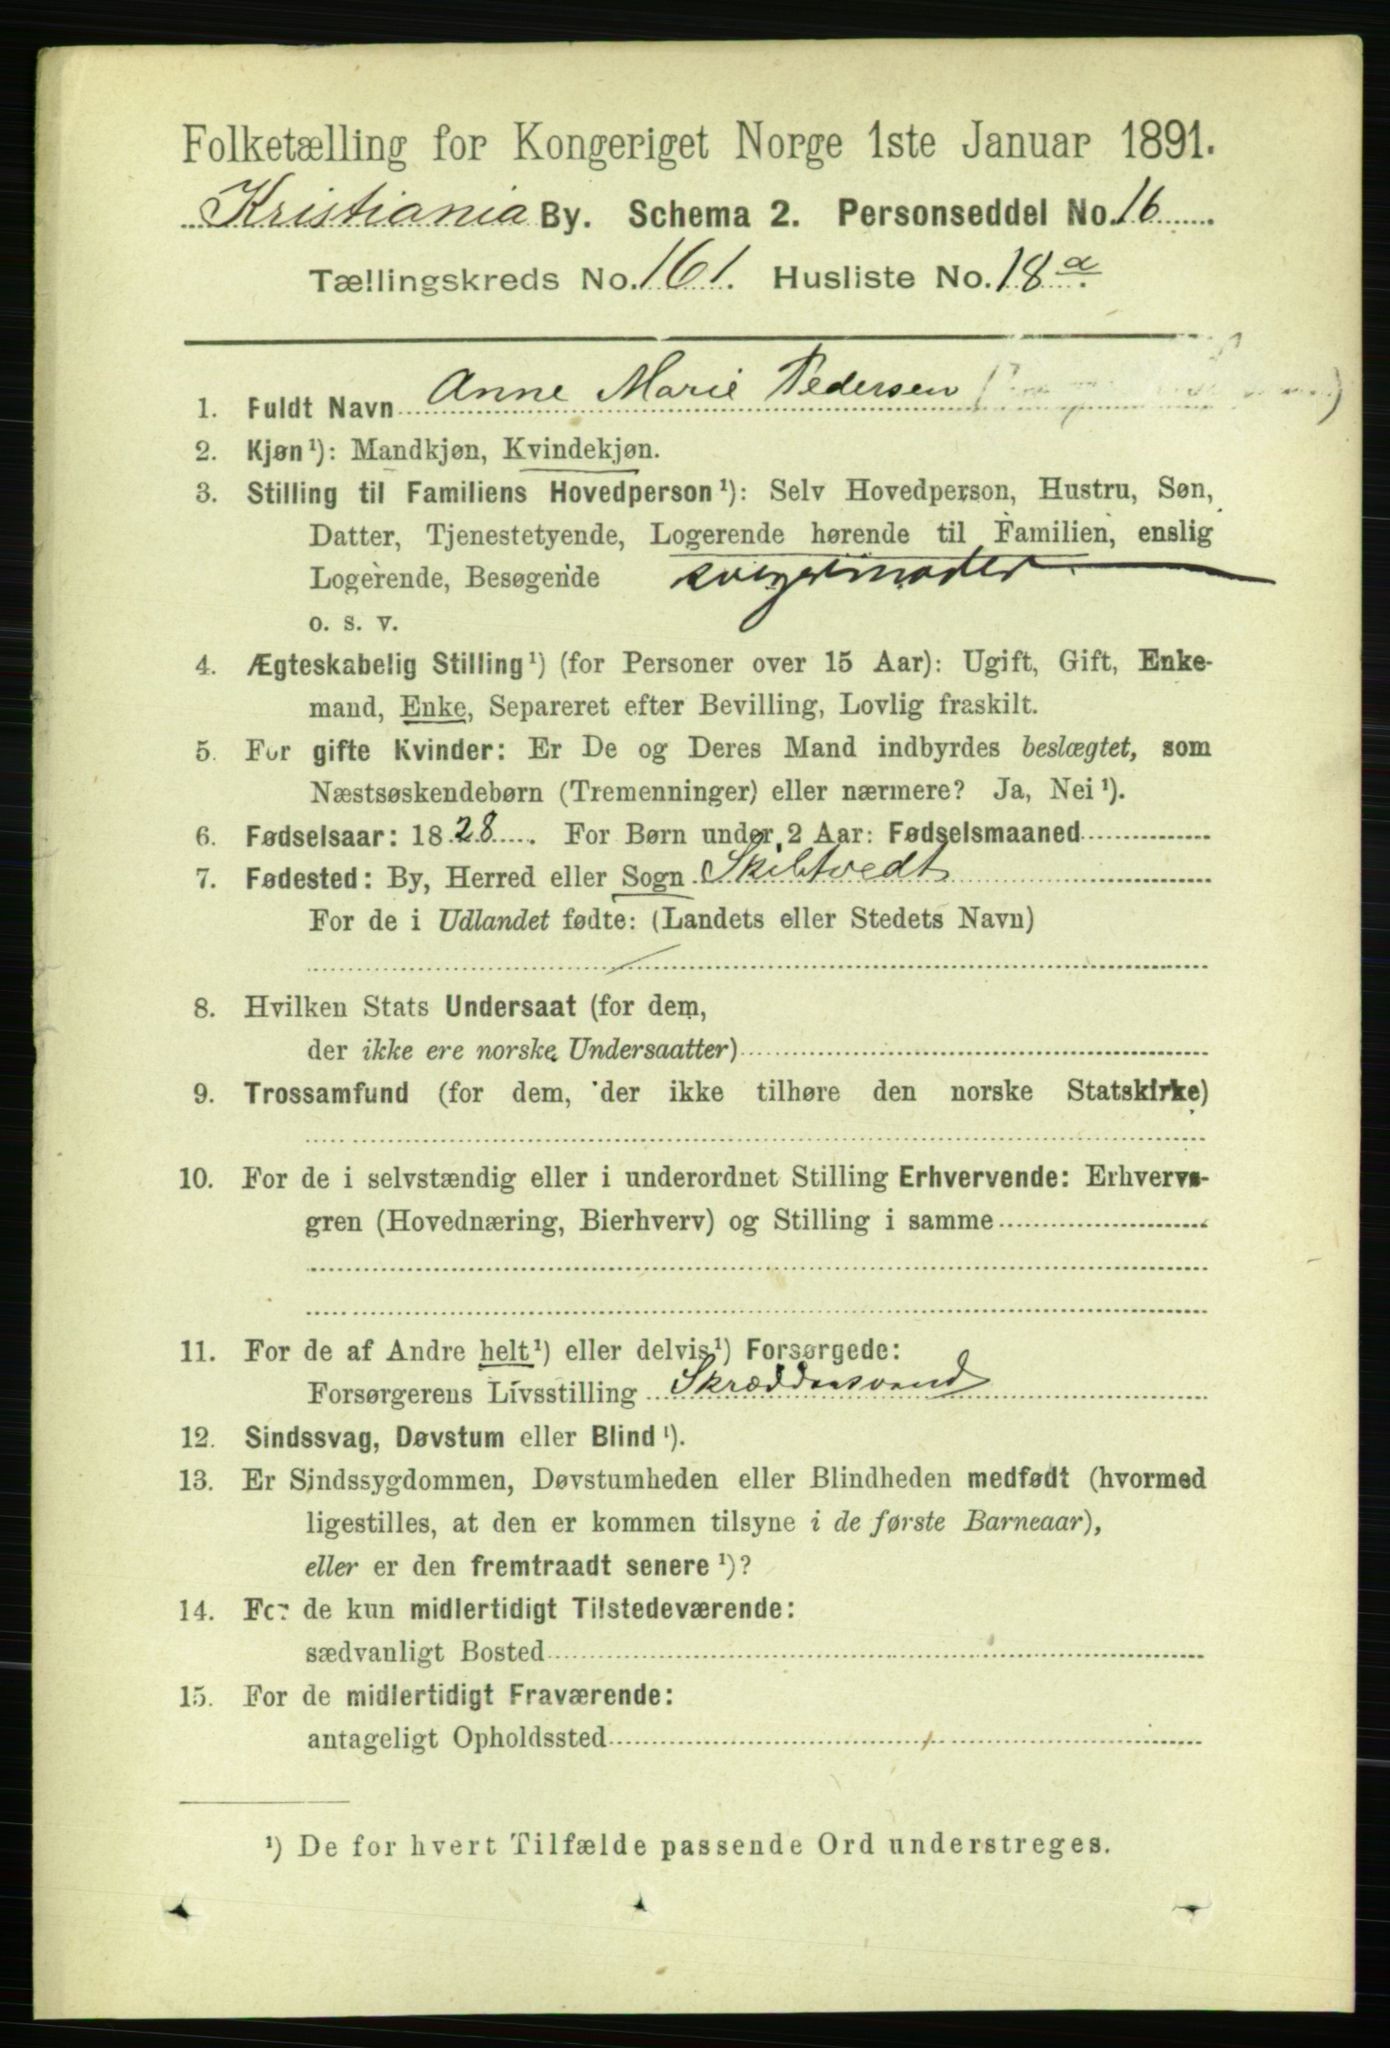 Folketælling for Kongeriget Norge 1ste Januar 1891.
Kristiania By. Schema 2. Personseddel No. 16
Tællingskreds No. 161. Husliste No. 18 a.
1. Fuldt Navn Anne Marie Pedersen
2. Kjøn¹): Mandkjøn, Kvindekjøn.
3. Stilling til Familiens Hovedperson¹): Selv Hovedperson, Hustru, Søn,
Datter, Tjenestetyende, Logerende hørende til Familien, enslig
Logerende, Besøgende svigermoder
o. s. v.
4. Ægteskabelig Stilling¹) (for Personer over 15 Aar): Ugift, Gift, Enke-
mand, Enke, Separeret efter Bevilling, Lovlig fraskilt.
5. For gifte Kvinder: Er De og Deres Mand indbyrdes beslægtet, som
Næstsøskendebørn (Tremenninger) eller nærmere? Ja, Nei¹).
6. Fødselsaar: 1828. For Børn under 2 Aar: Fødselsmaaned
7. Fødested: By, Herred eller Sogn Skibtvedt
For de i Udlandet fødte: (Landets eller Stedets Navn)
8. Hvilken Stats Undersaat (for dem,
der ikke ere norske Undersaatter)
9. Trossamfund (for dem, der ikke tilhøre den norske Statskirke)
10. For de i selvstændig eller i underordnet Stilling Erhvervende: Erhvervs-
gren (Hovednæring, Bierhverv) og Stilling i samme
11. For de af Andre helt¹) eller delvis¹) Forsørgede:
Forsørgerens Livsstilling Skræddersvend
12. Sindssvag, Døvstum eller Blind¹).
13. Er Sindssygdommen, Døvstumheden eller Blindheden medfødt (hvormed
ligestilles, at den er kommen tilsyne i de første Barneaar),
eller er den fremtraadt senere¹)?
14. For de kun midlertidigt Tilstedeværende:
sædvanligt Bosted
15. For de midlertidigt Fraværende:
antageligt Opholdssted
¹) De for hvert Tilfælde passende Ord understreges.